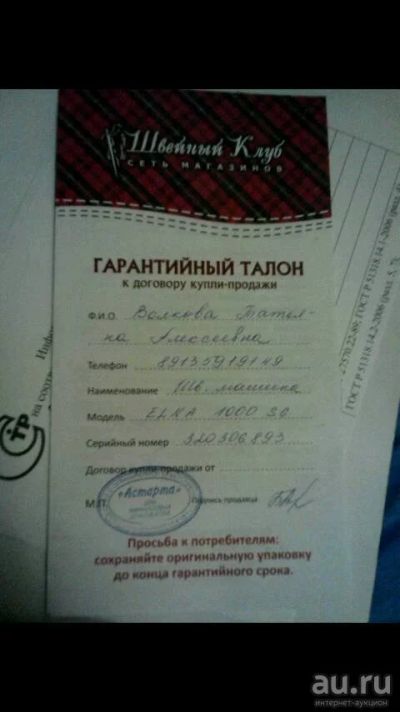 Швейный Клуб
СЕТЬ МАГАЗИНОВ
ГАРАНТИЙНЫЙ ТАЛОН
к договору купли-продажи
Ф.И.О. Волкова Татья-
на Алексеевна
Телефон 89135919149
Наименование Шв. машинка
Модель ELNA 1000 SQ
Серийный номер 320306893
Договор купли-продажи от
"Астарта"
М.П. Подпись продавца
Просьба к потребителям:
сохраняйте оригинальную упаковку
до конца гарантийного срока.
на соотв
Инфор
ТР
2570.22-89; ГОСТ Р 51318.14.1-2006 (разд. 4)
ГОСТ Р 51318.14.2-2006 (разд. 5, 7);
au.ru
интернет-аукцион